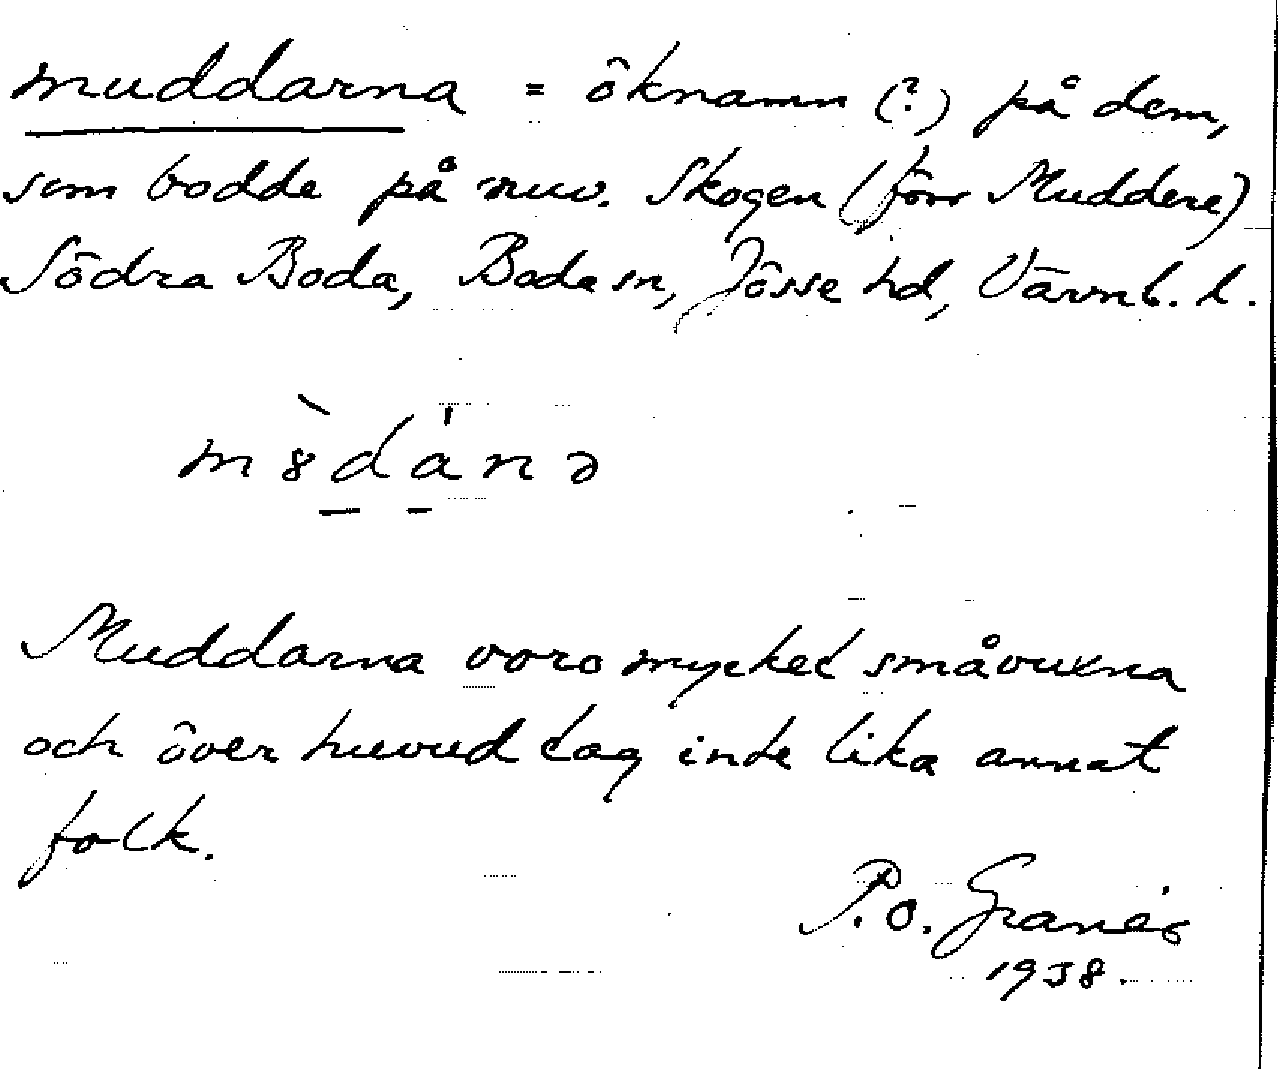 muddarna = öknamn (?) på dem,
som bodde på nuv. Skogen (förr Muddere)
Södra Boda, Boda sn, Jösse hd, Värml. l.
m8̀dánə
Muddarna voro mycket småvuxna
och över huvud tag inte lika annat
folk.
P. O. Granér
1938.